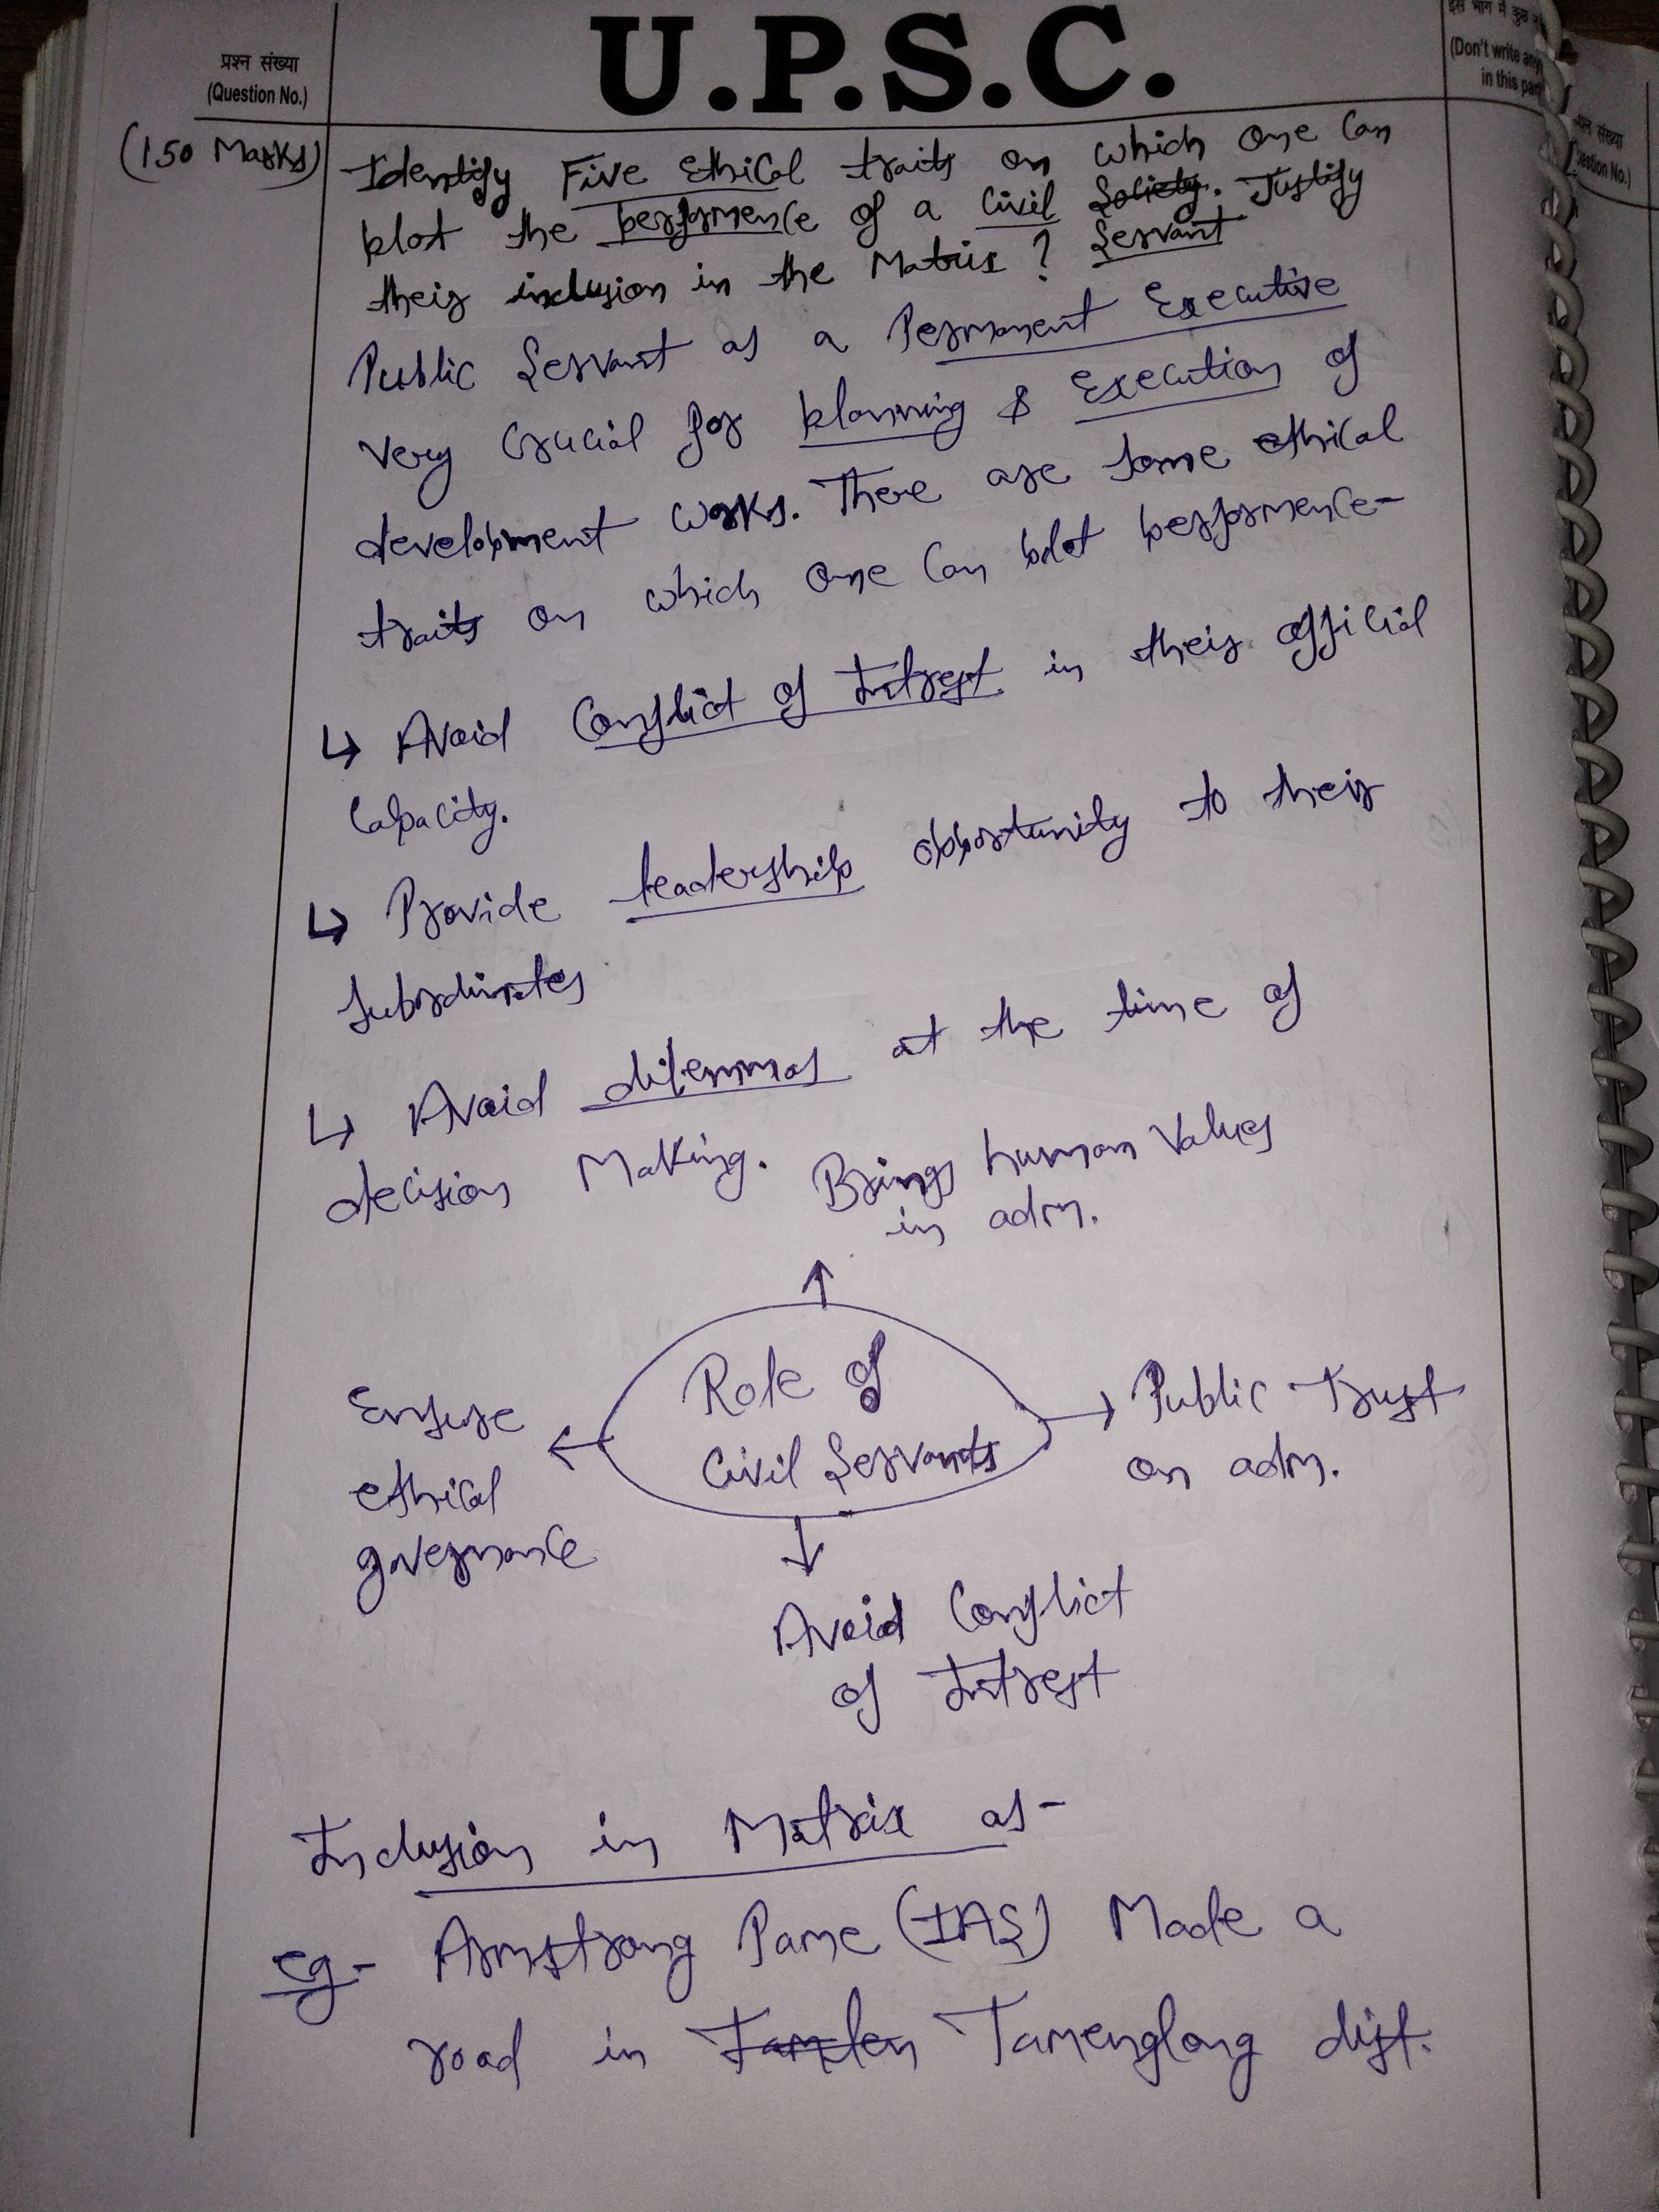 प्रश्न संख्या
(Question No.)
U.P.S.C.
इस भाग में कुछ
(Don't write any
in this part
प्रश्न संख्या
(Question No.)
(150 Marks)
Identify Five ethical traits on which one can
plot the performence of a civil Society. Justify
their inclusion in the Matrix ? Servant
Public Servant as a Permanent Executive
very crucial for planning & Execution of
development works. There are some ethical
traits on which one can plot performence-
↳ Avoid Conflict of Intrest in their official
capacity.
↳ Provide leadership opportunity to their
subordinates
↳ Avoid dilemmas at the time of
decision Making.
Brings human values
in adm.
Role of
Civil Servants
Ensure
ethical
governance
Public Trust
on adm.
Avoid Conflict
of Intrest
Inclusion in Matrix as-
eg- Armstrong Pame (IAS) Made a
road in Tamlen Tamenglong dist.